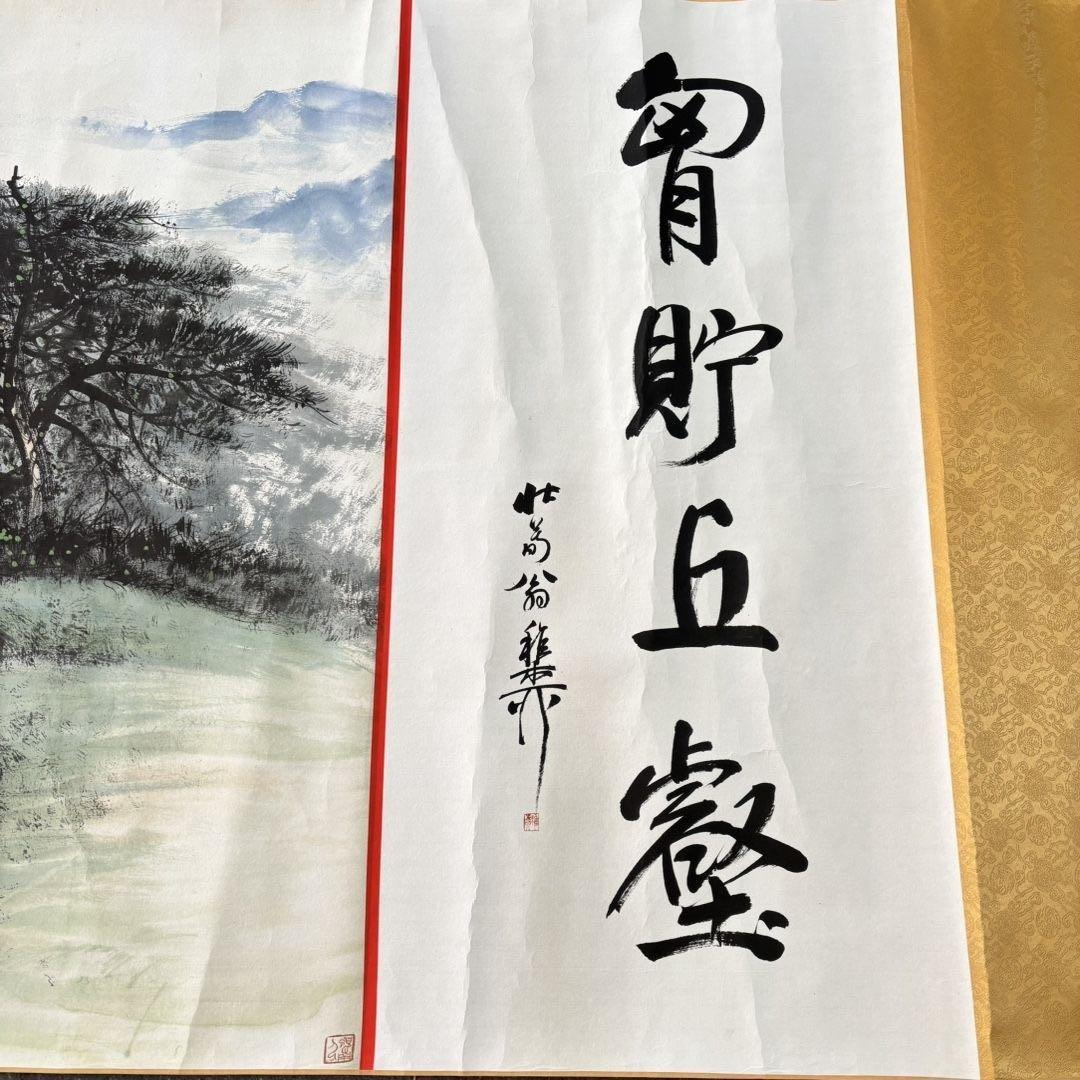 胷貯丘壑
壯暮翁稚柳